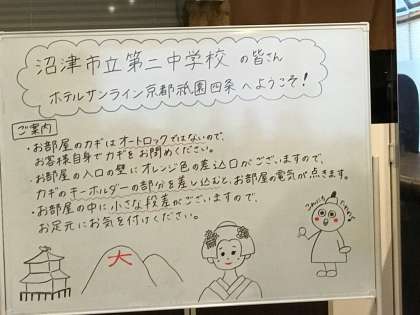 沼津市立第二中学校の皆さん
ホテルサンライン京都祇園四条へようこそ!
ご案内
・お部屋のカギはオートロックではないので、
お客様自身でカギをお閉めください。
・お部屋の入口の壁にオレンジ色の差込口がございますので、
カギのキーホルダーの部分を差し込むと、お部屋の電気が点きます。
・お部屋の中に小さな段差がございますので、
お足元にお気を付けください。
大